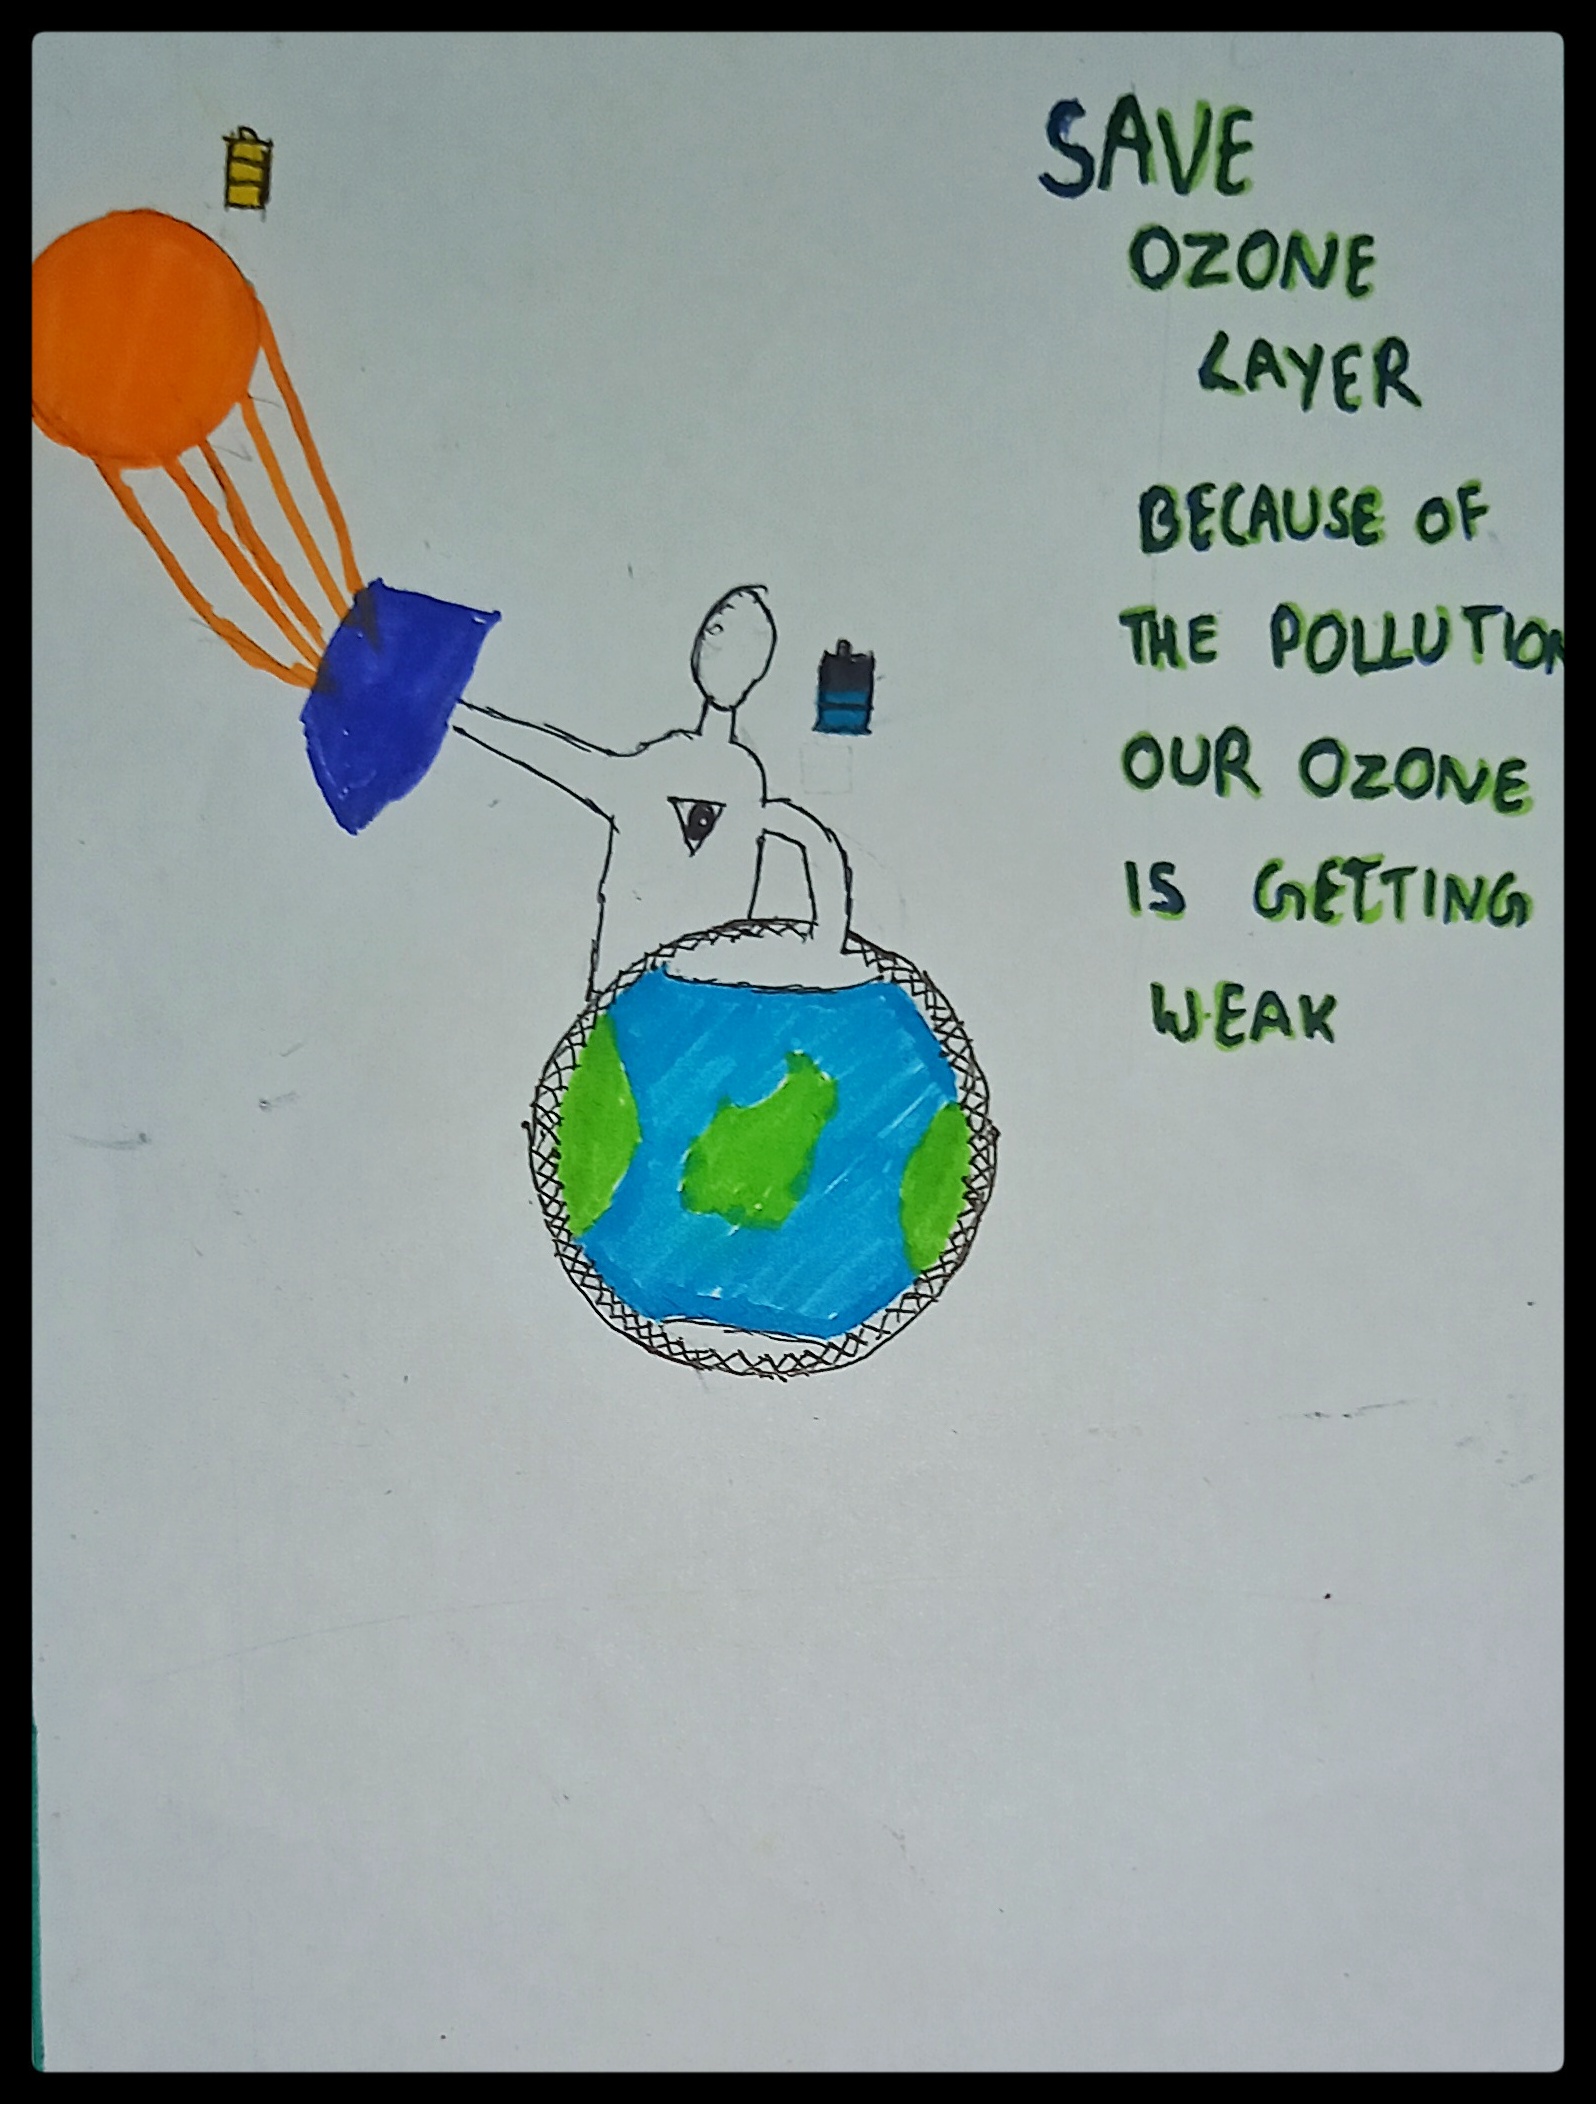 SAVE
OZONE
LAYER
BECAUSE OF
THE POLLUTION
OUR OZONE
IS GETTING
WEAK